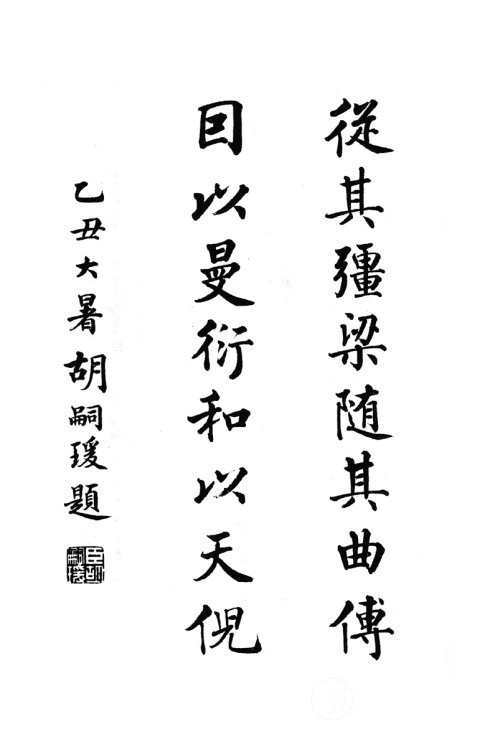 從其彊梁随其曲傅
因以曼衍和以天倪
乙丑大暑胡嗣瑗題